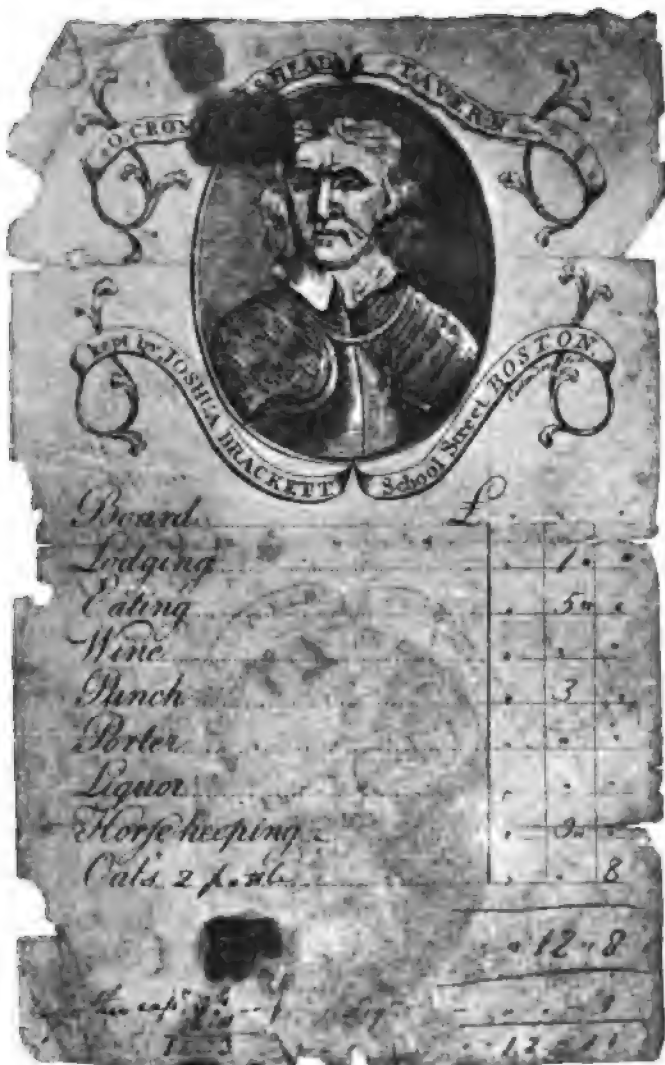 O. CROM SHEAD TAVERN
kept by JOSHUA BRACKETT School Street BOSTON.
Board £
Lodging 1
Eating 5
Wine
Punch 3
Porter
Liquor
Horse keeping
Oats 2 8
12 8